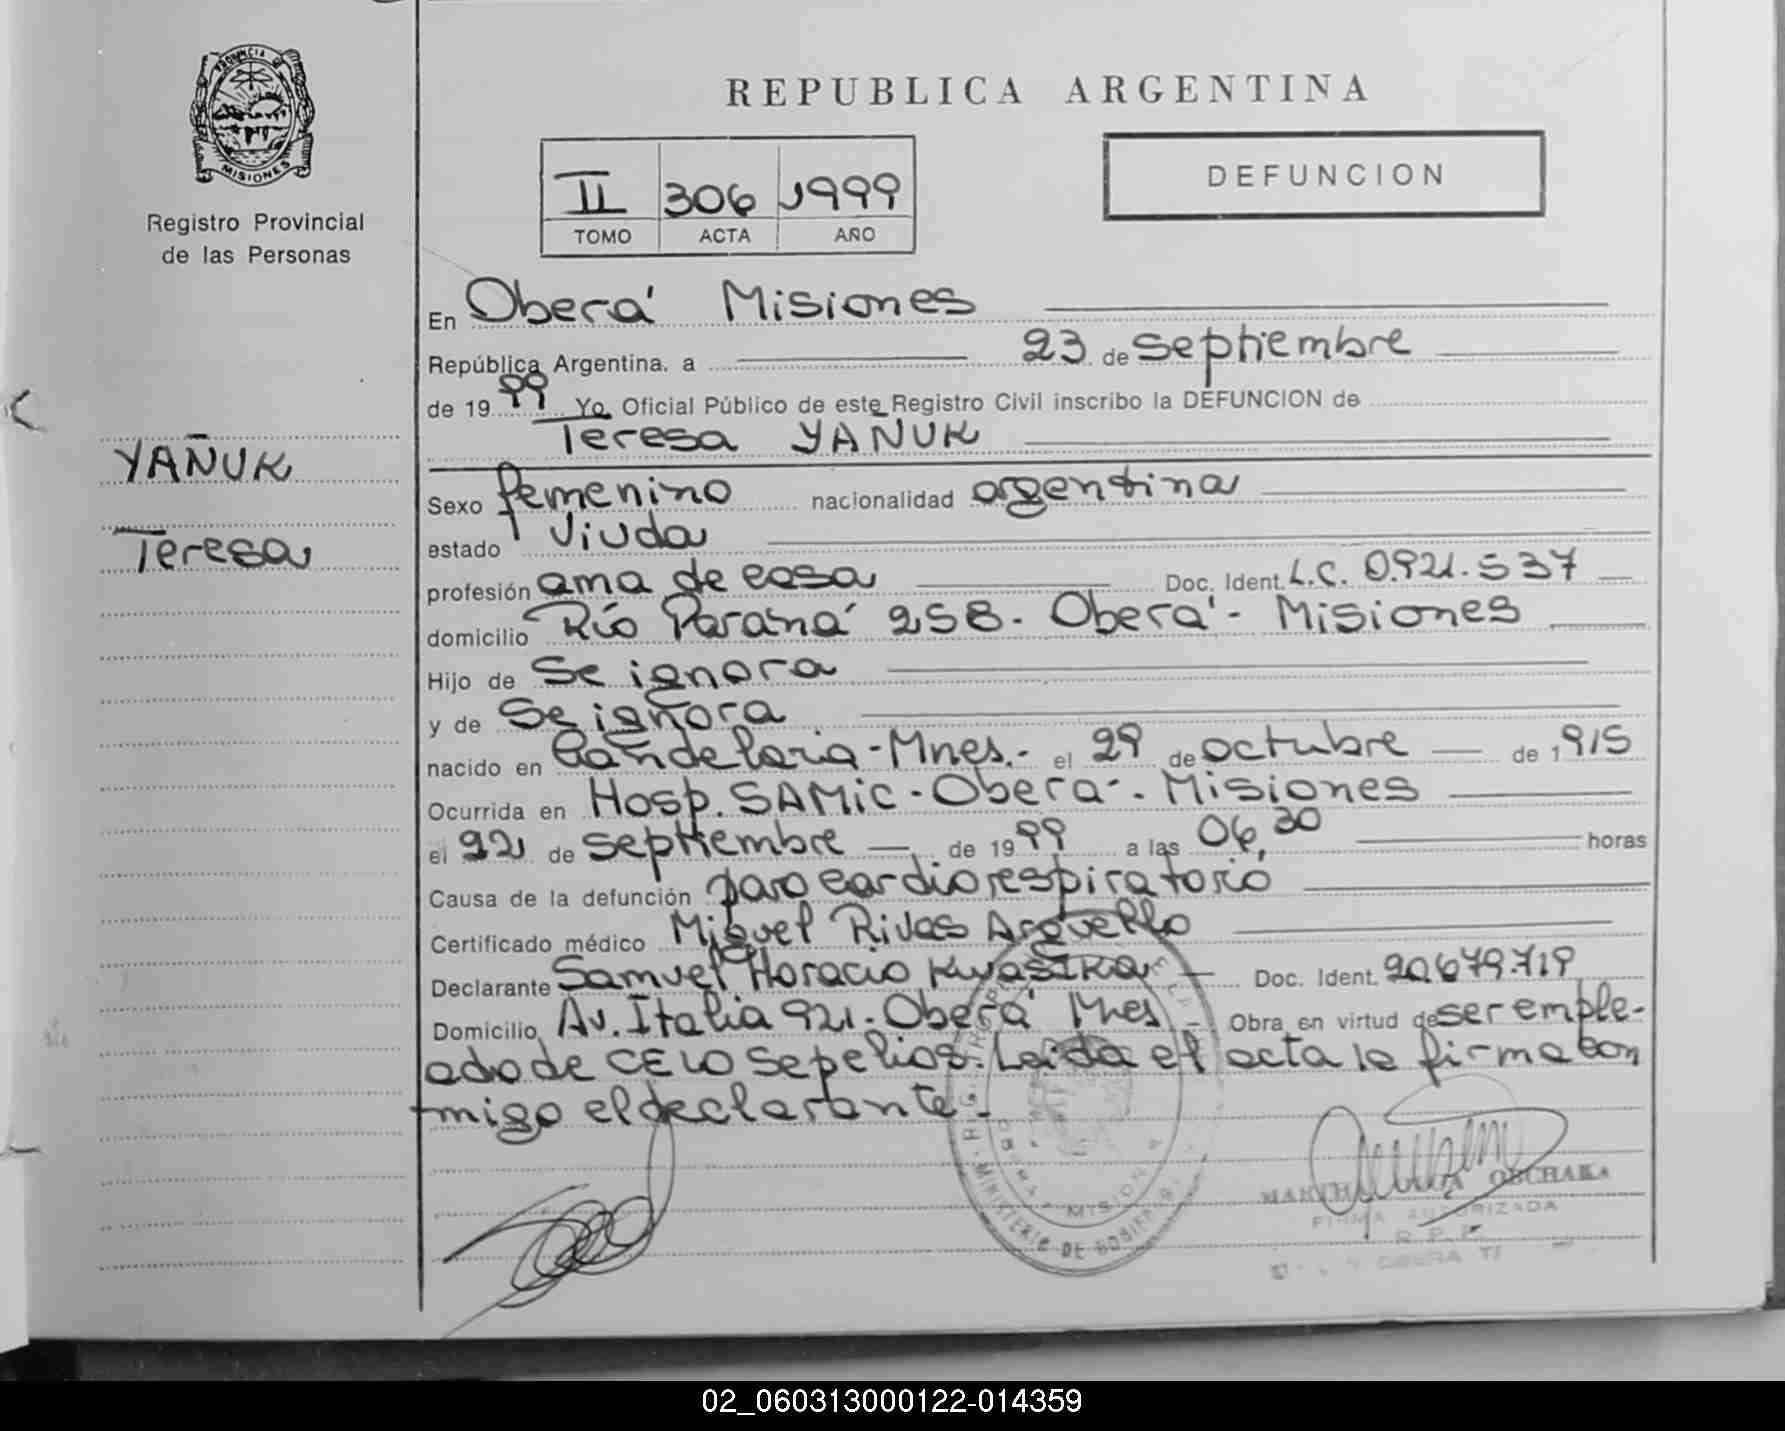 PROVINCIA DE
MISIONES
Registro Provincial
de las Personas
YAÑUK
Teresa
REPUBLICA ARGENTINA
II 306 1999
TOMO ACTA AÑO
DEFUNCION
En Oberá Misiones
República Argentina, a 23 de septiembre
de 1999 Yo, Oficial Público de este Registro Civil inscribo la DEFUNCION de
Teresa YAÑUK
Sexo femenino nacionalidad argentina
estado Viuda
profesión ama de casa Doc. Ident. L.C. 0.921.537
domicilio Río Paraná 258. Oberá - Misiones
Hijo de Se ignora
y de Se ignora
nacido en Candelaria - Mnes. - el 29 de octubre de 1915
Ocurrida en Hosp. SAMIC - Oberá - Misiones
el 22 de septiembre de 1999 a las 06,30 horas
Causa de la defunción paro cardiorespiratorio
Certificado médico Miguel Rivas Arguello
Declarante Samuel Horacio Kwasika Doc. Ident. 20.679.719
Domicilio Av. Italia 921. Oberá Mnes - Obra en virtud de ser emple-
ado de CELO Sepelios. Leida el acta la firma con
migo el declarante.-
MINISTERIO DE GOBIERNO
OBERA MISIONES
OBCHAKA
FIRMA AUTORIZADA
R. P. P.
OBERA
02_060313000122-014359